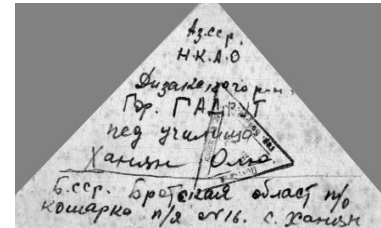 Аз.сср.
Н.К.А.О
Дизакского р-н.
Гор. ГАДРУТ
пед училища
Ханян Оля
Б.сср. Бротская област п/о
кошарко п/я №16. с. Ханян